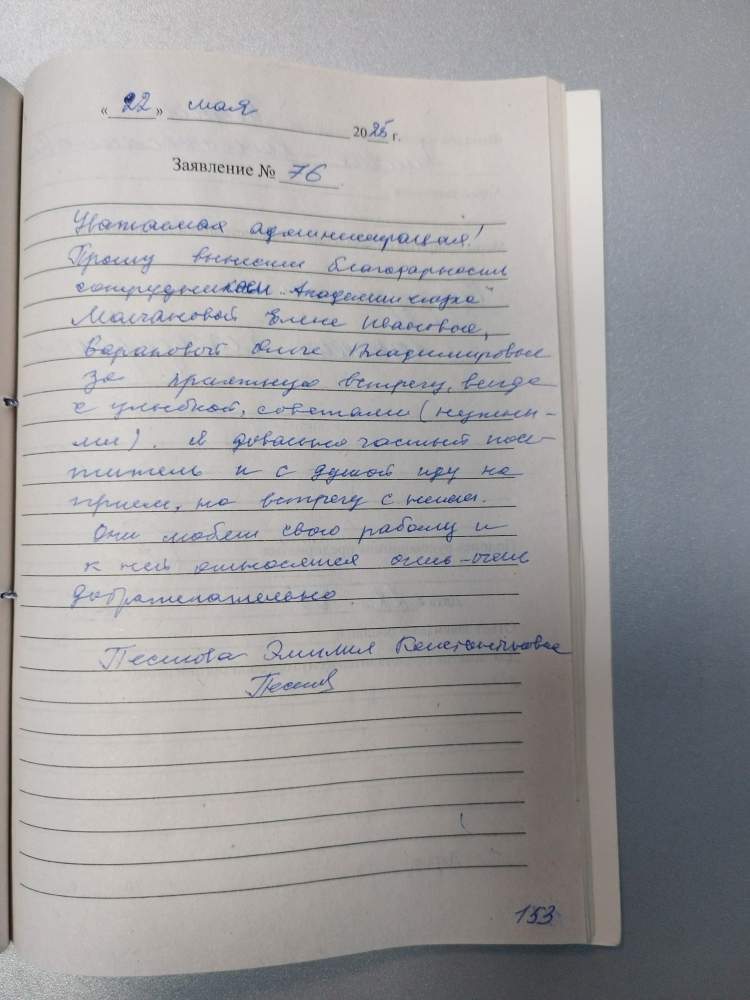 « 22 » мая 2025 г.
Заявление № 76
Уважаемая администрация!
Прошу вынести благодарность
сотрудникам "Академии
Молчановой Елене Ивановне,
Ольге Владимировне
за приятную встречу, всегда
с улыбкой, советами (нужны-
ми). Я довольно частый посе-
титель и с душой иду на
прием, на встречу с ними.
Они любят свою работу и
к ней относятся очень-очень
доброжелательно.
Эмилия Константиновна
153